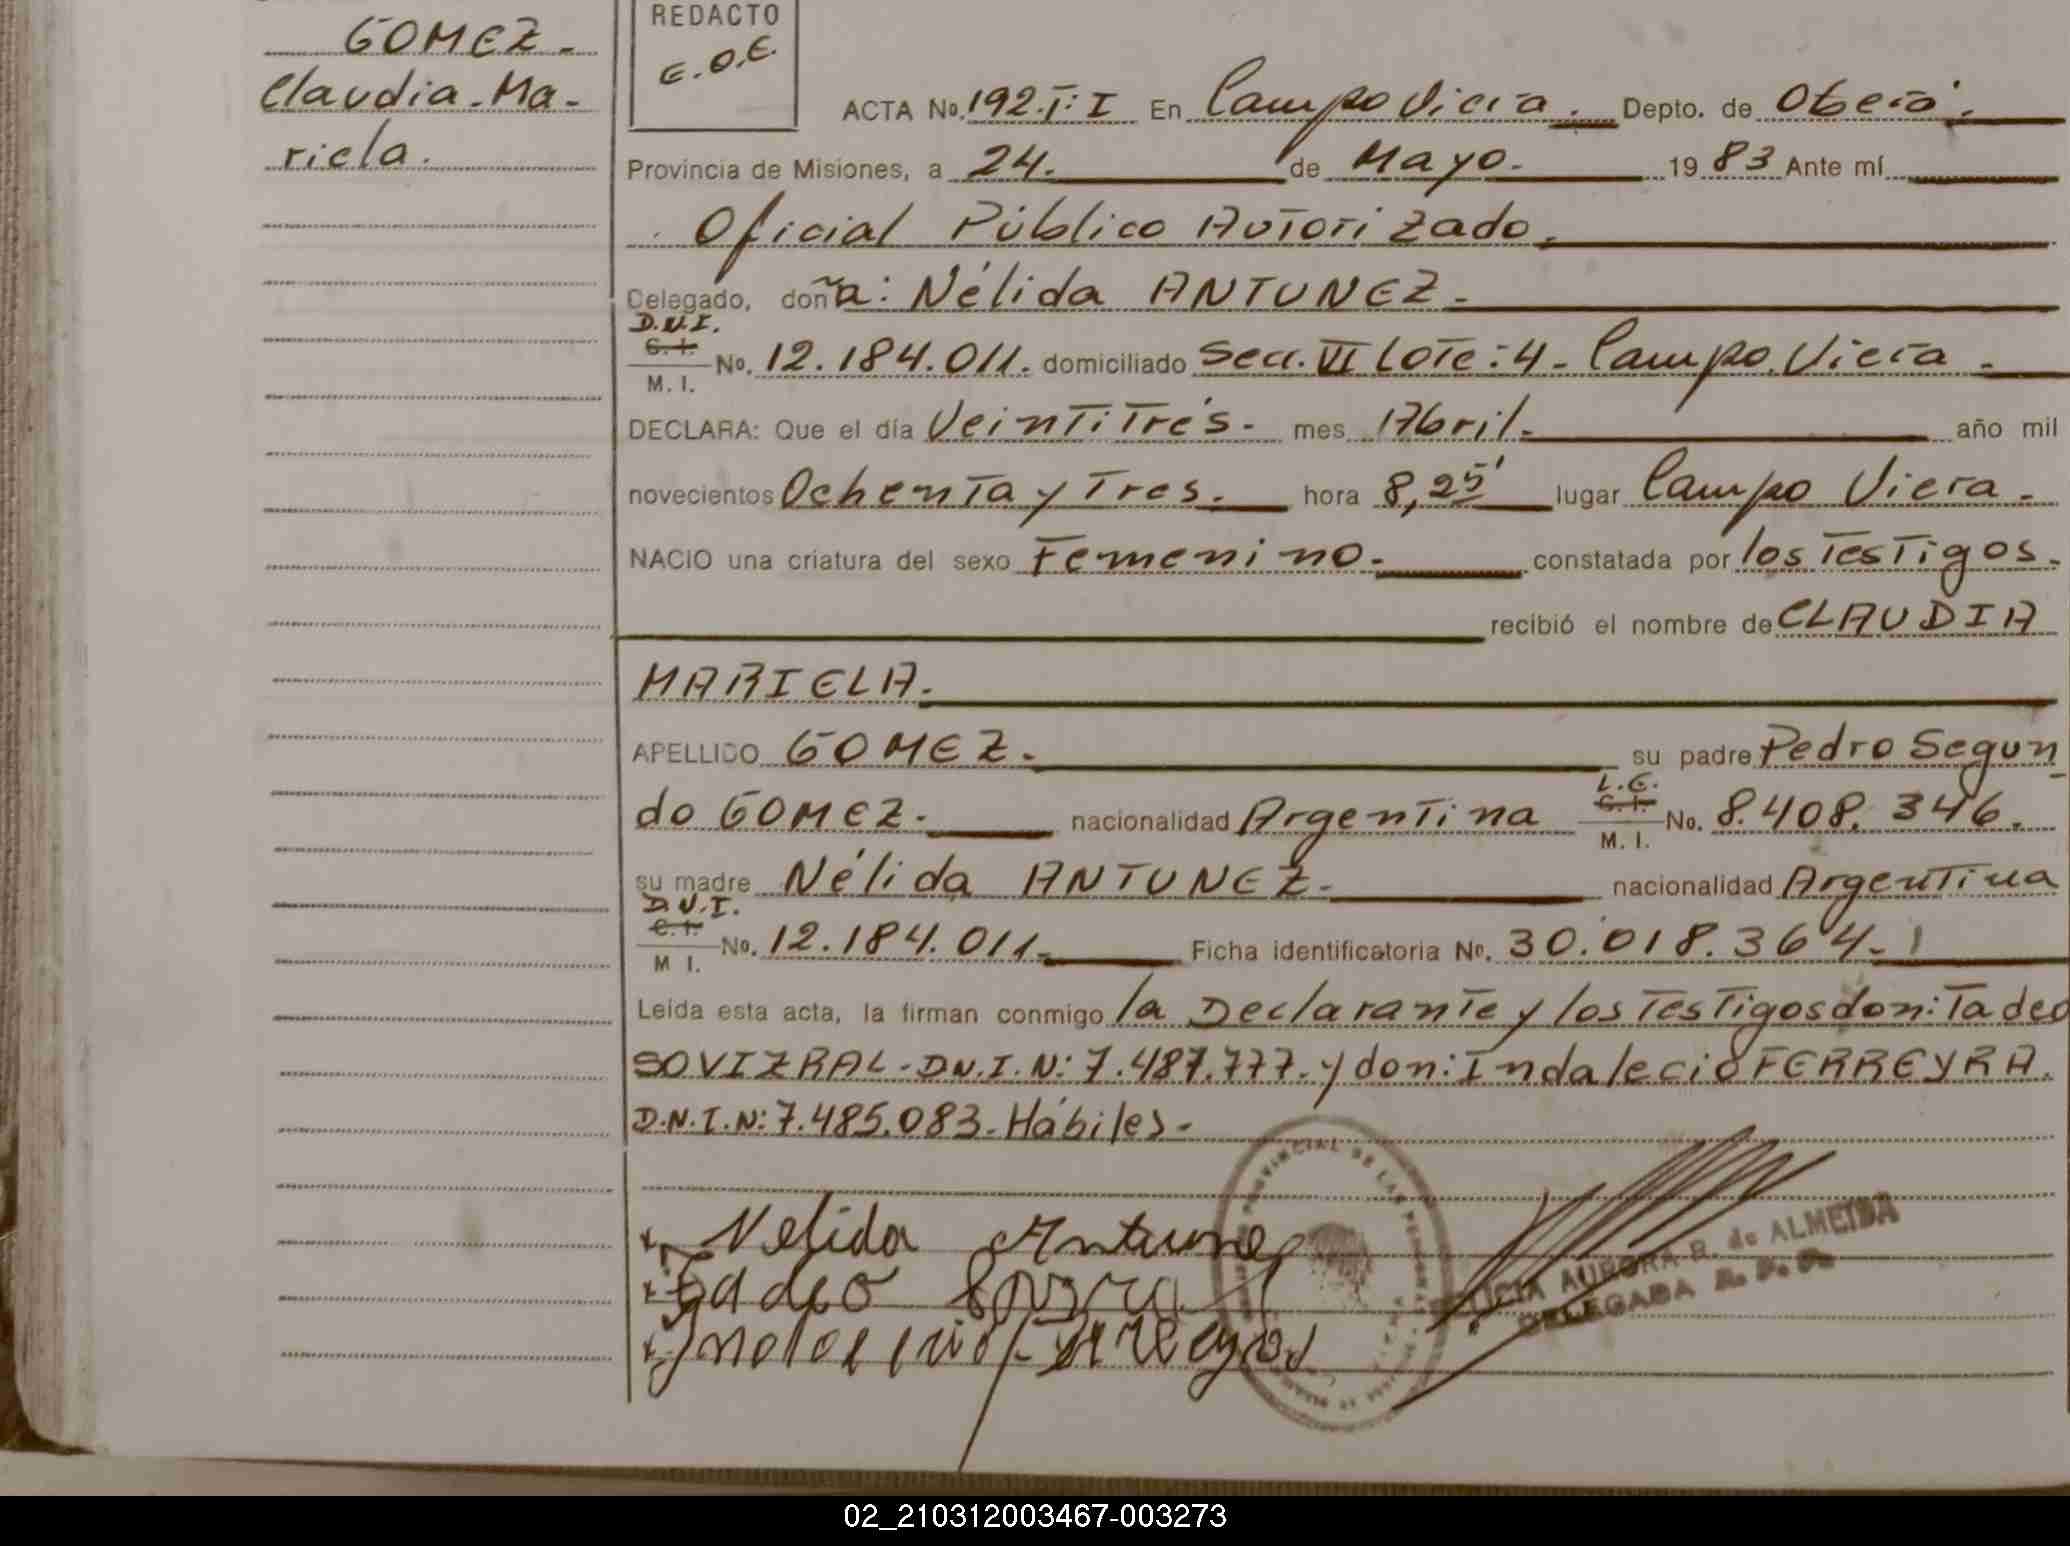 GOMEZ-
Claudia-Ma-
riela.
REDACTO
E.O.E.
ACTA No. 192.T:I En Campo Viera. Depto. de Oberá.
Provincia de Misiones, a 24. de Mayo. 1983 Ante mí
Oficial Público Autorizado.
Delegado, doña: Nélida ANTUNEZ-
D.N.I.
C. I.
M. I. No. 12.184.011. domiciliado Secc. VI Lote: 4- Campo Viera-
DECLARA: Que el día Veintitrés- mes Abril- año mil
novecientos Ochenta y Tres. hora 8,25' lugar Campo Viera-
NACIO una criatura del sexo Femenino- constatada por los Testigos-
recibió el nombre de CLAUDIA
MARIELA-
APELLIDO GOMEZ- su padre Pedro Segun-
do GOMEZ- nacionalidad Argentina L.E. C. I. M. I. No. 8.408.346.
su madre Nélida ANTUNEZ- nacionalidad Argentina
D.N.I.
C. I.
M I. No. 12.184.011- Ficha identificatoria No. 30.018.364-
Leída esta acta, la firman conmigo la Declarante y los Testigos don: Tadeo
SOVIZRAL-D.N.I.N: 7.487.777. y don: Indalecio FERREYRA.
D.N.I.N: 7.485.083-Hábiles-
PROVINCIAL DE LAS PERSONAS
Nelida Antunez
Tadeo
AURORA R. de ALMEIDA
DELEGADA R. P. P.
02_210312003467-003273